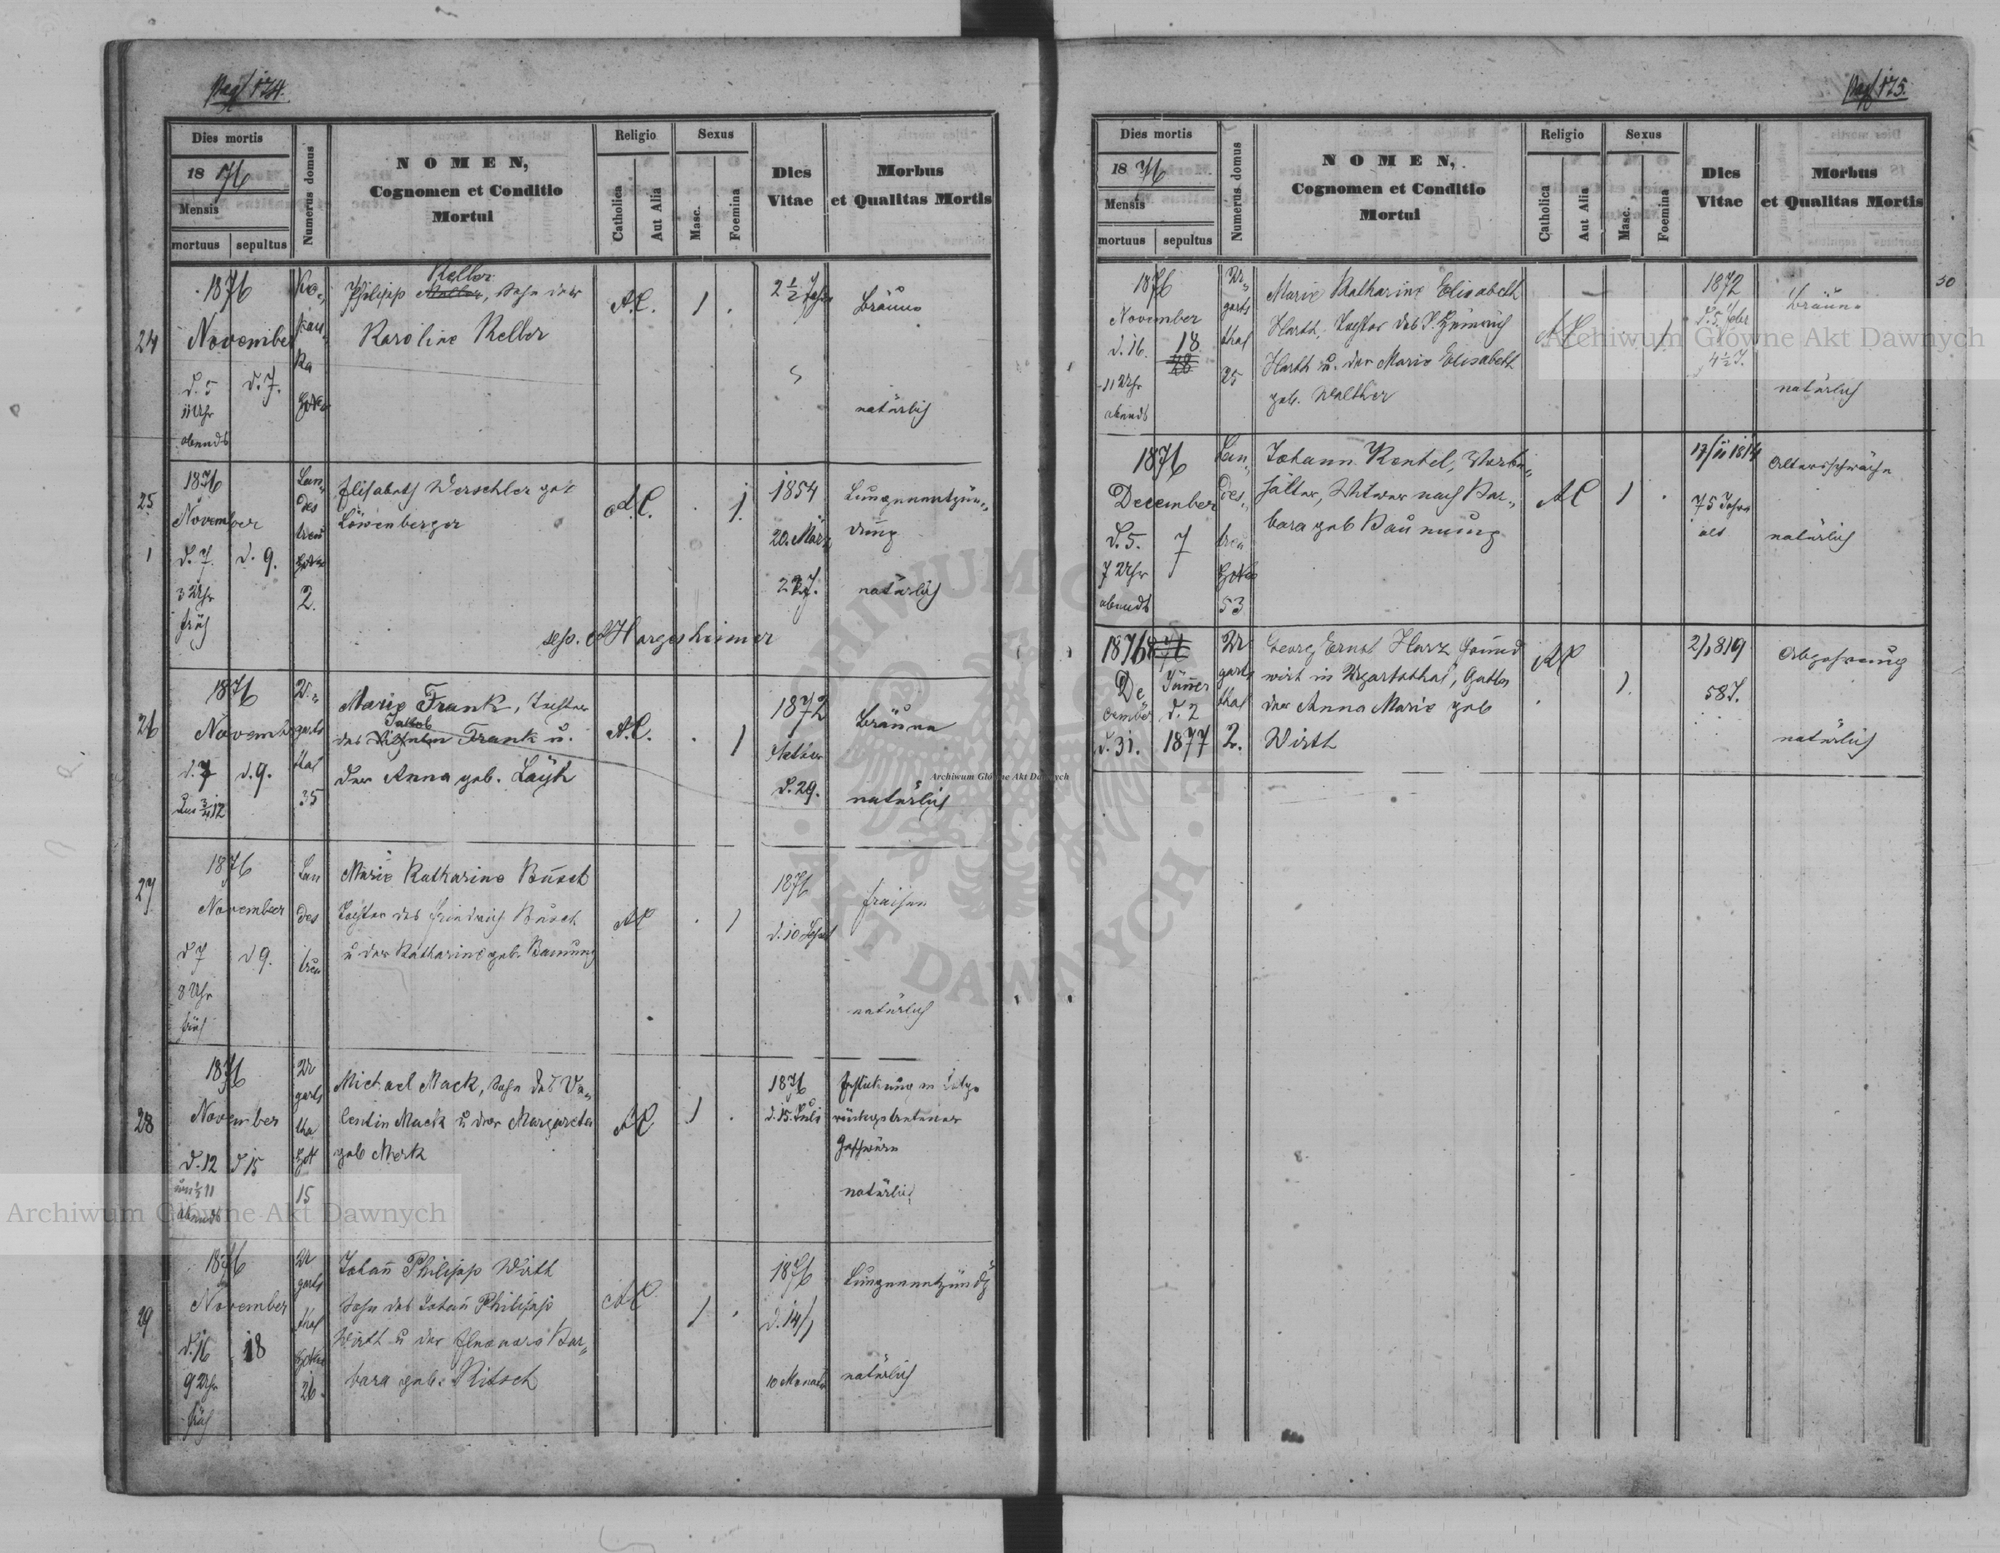 Pag 174.
Dies mortis
1876
Mensis
mortuus sepultus
Numerus domus
NOMEN,
Cognomen et Conditio
Mortui
Religio
Catholica
Aut Alia
Sexus
Masc.
Foemina
Dies
Vitae
Morbus
et Qualitas Mortis
24
1876
November
d. 5 d. 7.
11 Uhr
abends
Keller
Philipp, Sohn der
Karoline Keller
A.C.
1
2 1/2 Jahre
Bräune
natürlich
25
1876
November
d. 7. d. 9.
3 Uhr
früh
Lan-
des
treu
2.
Elisabeth Werschler geb
Löwenberger
A.C.
1
1854
20. März
22 J.
Lungenentzün-
dung
natürlich
26
1876
November
d. 7 d. 9.
U-
garts
thal
35
Marie Frank, Tochter
Jakob
des Frank u.
der Anna geb. Läyh
A.C.
1
1872
d. 29.
Bräune
natürlich
27
1876
November
d 7 d 9.
8 Uhr
früh
Lan
des
treu
Marie Katharine Busch
Tochter des Friedrich Busch
u der Katharine geb. Baunung
AC
1
1876
d. 10
Fraisen
natürlich
28
1876
November
d. 12 d 15
abends
Ur
garts
tha
15
Michael Mack, Sohn des Va-
lentin Mack u der Margareta
geb Merk
AC
1
1876
d. 15. Juli
Erstickung in Folge
Geschwüre
natürlich
29
1876
November
d. 16 18
9 Uhr
früh
Ur
garts
thal
26.
Johann Philipp Wirth
Sohn des Johann Philipp
Wirth u der Eleonore Bar-
bara geb. Ritsch
AC
1
1876
d. 14/1
10 Monate
Lungenentzündg
natürlich
Pag 175.
Dies mortis
1876
Mensis
mortuus sepultus
Numerus domus
NOMEN,
Cognomen et Conditio
Mortui
Religio
Catholica
Aut Alia
Sexus
Masc.
Foemina
Dies
Vitae
Morbus
et Qualitas Mortis
30
1876
November
d. 16. 18
11 Uhr
abends
Ur-
garts
thal
25
Marie Katharine Elisabeth
Harth, Tochter des P. Heinrich
Harth u. der Marie Elisabeth
geb. Walther
AC
1
1872
d. 5.
4 1/2 J.
Bräune
natürlich
1876
December
d. 5. 7
7 Uhr
abends
Lan-
des-
treu
53
Johann Kentel,
hälter, Witwer nach Bar-
bara geb Baunung
AC
1
17/11 1814
75 Jahre
alt
Altersschwäche
natürlich
1876
De Jänner
cember d. 2
d. 31. 1877
Ur
garts
thal
2.
Georg Ernst Harz Grund
wirt in Ugartsthal, Gatte
der Anna Marie geb
Wirth
AC
1
2/1 819
58 J.
Abzehrung
natürlich
Archiwum Główne Akt Dawnych
Archiwum Główne Akt Dawnych
Archiwum Główne Akt Dawnych